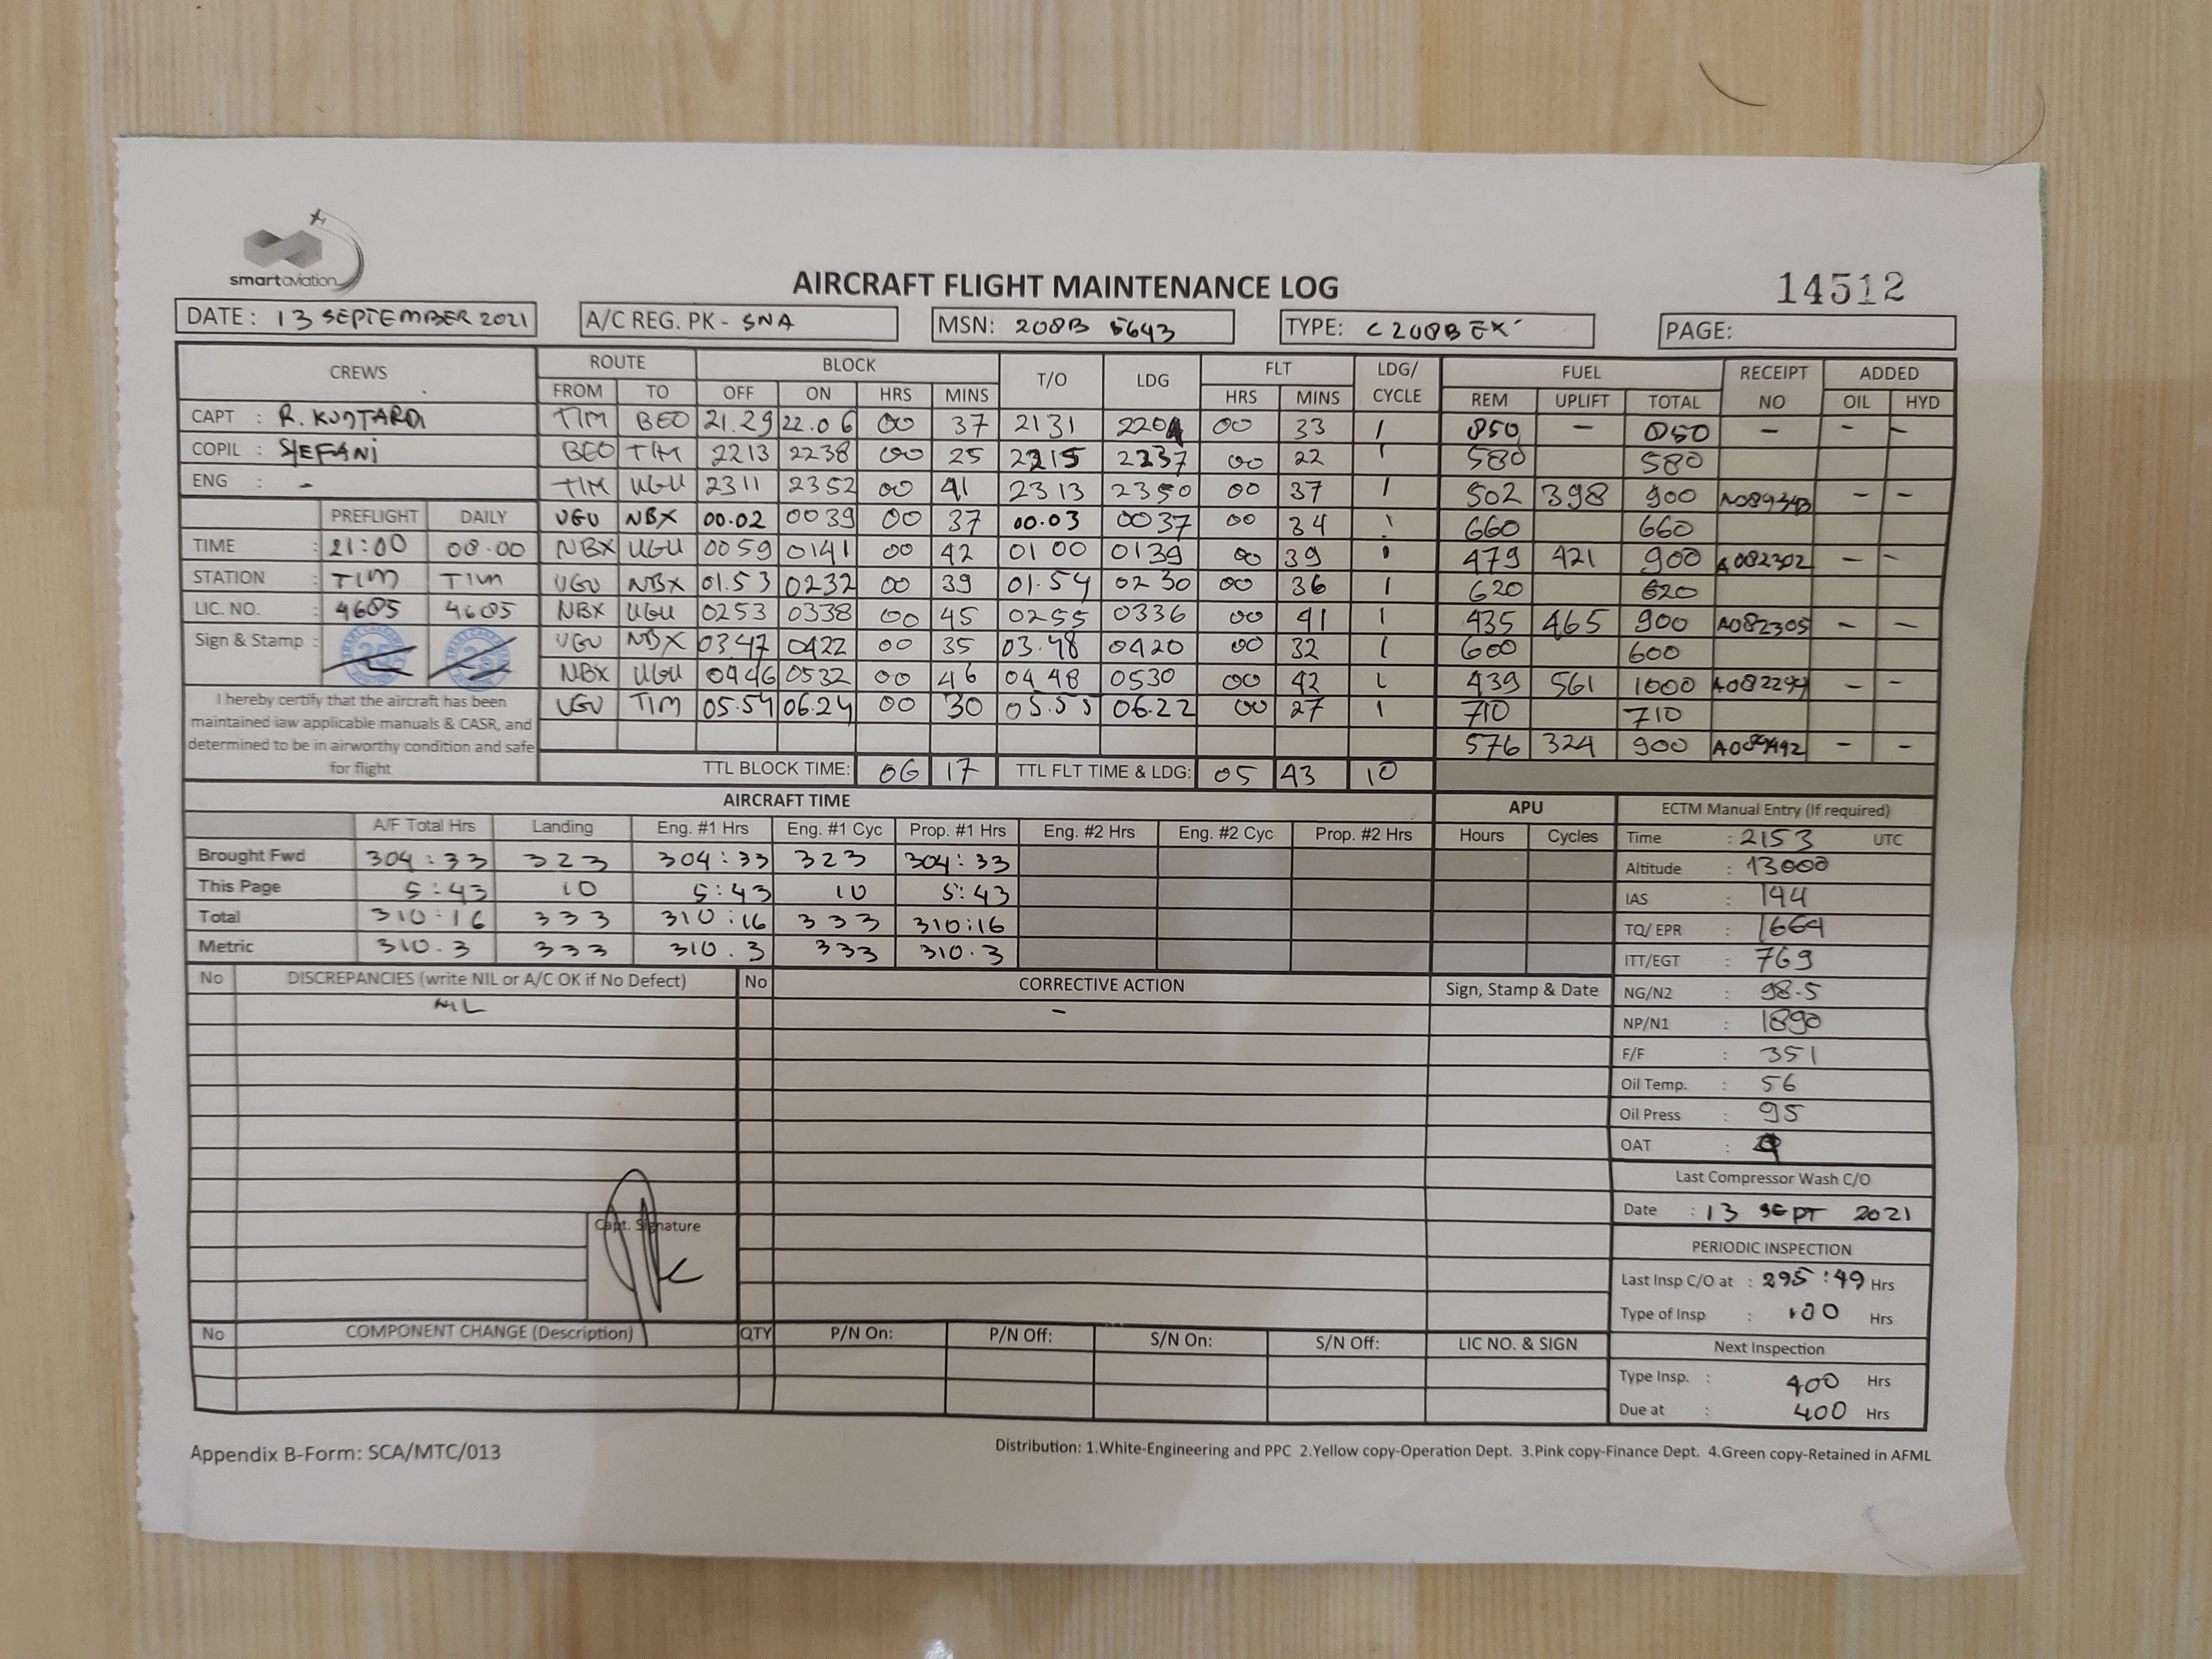 smartaviation
AIRCRAFT FLIGHT MAINTENANCE LOG 14512
DATE: 13 SEPTEMBER 2021 A/C REG. PK - SNA MSN: 208B 5643 TYPE: C208B EX PAGE:
CREWS ROUTE BLOCK T/O LDG FLT LDG/ CYCLE FUEL RECEIPT NO ADDED
FROM TO OFF ON HRS MINS HRS MINS REM UPLIFT TOTAL OIL HYD
CAPT : R. KUSTARDI TIM BEO 21.29 22.06 00 37 2131 2204 00 33 1 850 - 850 - - -
COPIL : STEFANI BEO TIM 2213 2238 00 25 2215 2237 00 22 1 580 580
ENG : - TIM UGU 2311 2352 00 41 2313 2350 00 37 1 502 398 900 - -
PREFLIGHT DAILY UGU NBX 00.02 0039 00 37 00.03 0037 00 34 1 660 660
TIME : 21:00 00.00 NBX UGU 0059 0141 00 42 01 00 0139 00 39 1 479 421 900 A082302 - -
STATION : TIM TIM UGU NBX 01.53 0232 00 39 01.54 0230 00 36 1 620 620
LIC. NO. : 4685 4685 NBX UGU 0253 0338 00 45 0255 0336 00 41 1 435 465 900 A082305 - -
Sign & Stamp : UGU NBX 0347 0422 00 35 03.48 0420 00 32 1 600 600
NBX UGU 0446 0532 00 46 04 48 0530 00 42 1 439 561 1000 A082294 - -
UGU TIM 05.54 06.24 00 30 05.55 06.22 00 27 1 710 710
576 324 900 - -
I hereby certify that the aircraft has been
maintained iaw applicable manuals & CASR, and
determined to be in airworthy condition and safe
for flight
TTL BLOCK TIME: 06 17 TTL FLT TIME & LDG: 05 43 10
AIRCRAFT TIME APU ECTM Manual Entry (If required)
A/F Total Hrs Landing Eng. #1 Hrs Eng. #1 Cyc Prop. #1 Hrs Eng. #2 Hrs Eng. #2 Cyc Prop. #2 Hrs Hours Cycles Time : 2153 UTC
Brought Fwd 304:33 323 304:33 323 304:33 Altitude : 13000
This Page 5:43 10 5:43 10 5:43 IAS : 144
Total 310:16 333 310:16 333 310:16 TQ/ EPR : 1664
Metric 310.3 333 310.3 333 310.3 ITT/EGT : 769
No DISCREPANCIES (write NIL or A/C OK if No Defect) No CORRECTIVE ACTION Sign, Stamp & Date NG/N2 : 98.5
NIL - NP/N1 : 1890
F/F : 351
Oil Temp. : 56
Oil Press : 95
OAT :
Last Compressor Wash C/O
Date : 13 SEPT 2021
Capt. Signature
PERIODIC INSPECTION
Last Insp C/O at : 295:49 Hrs
Type of Insp : 100 Hrs
No COMPONENT CHANGE (Description) QTY P/N On: P/N Off: S/N On: S/N Off: LIC NO. & SIGN Next Inspection
Type Insp. : 400 Hrs
Due at : 400 Hrs
Appendix B-Form: SCA/MTC/013 Distribution: 1.White-Engineering and PPC 2.Yellow copy-Operation Dept. 3.Pink copy-Finance Dept. 4.Green copy-Retained in AFML